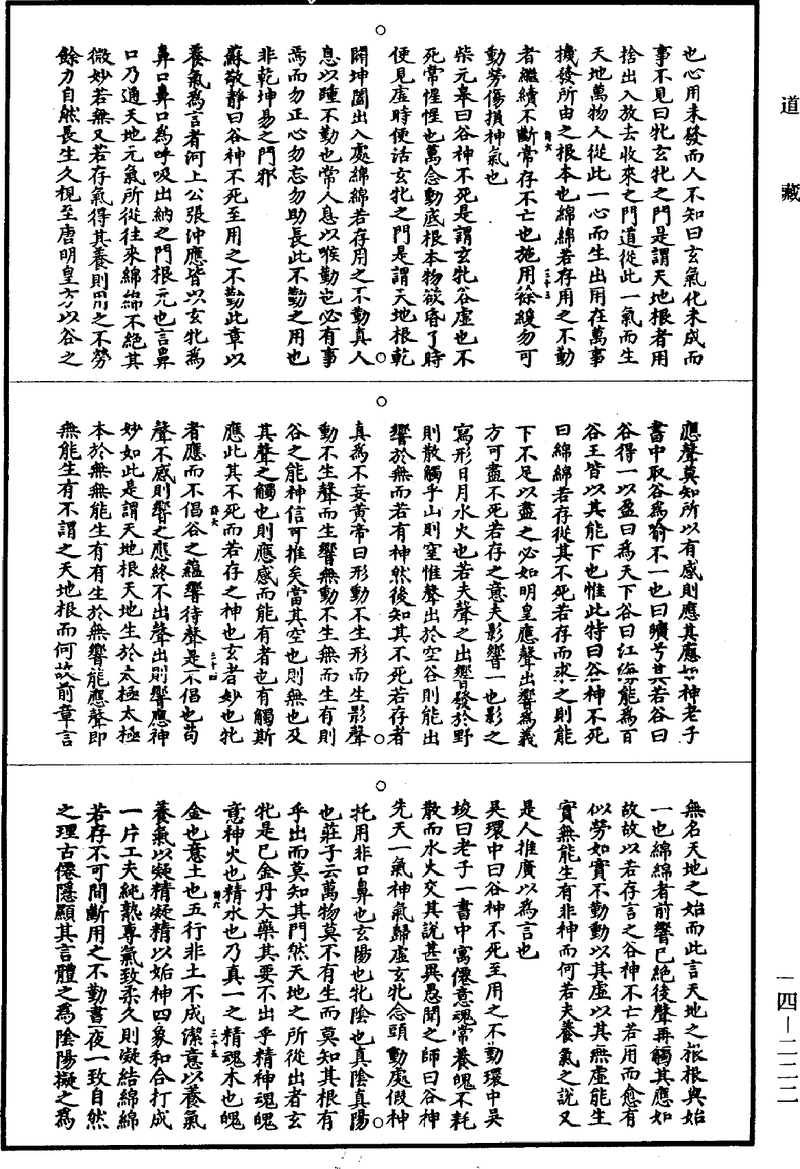 道藏
也心用未發而人不知曰玄氣化未成而
事不見曰牝玄牝之門是謂天地根者用
捨出入放去收來之門道從此一氣而生
天地萬物人從此一心而生出用在萬事
機發所由之根本也綿綿若存用之不勤
者繼續不斷常存不亡也施用徐緩勿可
動勞傷損神氣也
柴元皋曰谷神不死是謂玄牝谷虛也不
死常惺惺也萬念動底根本物欲昏了時
便見虛時便活玄牝之門是謂天地根乾
闢坤闔出入處綿綿若存用之不勤真人
息以踵不勤也常人息以喉勤也必有事
焉而勿正心勿忘勿助長此不勤之用也
非乾坤易之門邪
蘇敬靜曰谷神不死至用之不勤此章以
養氣為言者河上公張沖應皆以玄牝為
鼻口鼻口為呼吸出納之門根元也言鼻
口乃通天地元氣所從往來綿綿不絕其
微妙若無又若存氣得其養則用之不勞
餘力自然長生久視至唐明皇方以谷之
應聲莫知所以有感則應其應如神老子
書中取谷為喻不一也曰曠兮其若谷曰
谷得一以盈曰為天下谷曰江海能為百
谷王皆以其能下也惟此特曰谷神不死
曰綿綿若存從其不死若存而求之則能
下不足以盡之必如明皇應聲出響為義
方可盡不死若存之意夫影響一也影之
寫形日月水火也若夫聲之出響發於野
則散觸乎山則窒惟聲出於空谷則能出
響於無而若有神然後知其不死若存者
真為不妄黃帝曰形動不生形而生影聲
動不生聲而生響無動不生無而生有則
谷之能神信可推矣當其空也則無也及
其聲之觸也則應感而能有者也有觸斯
應此其不死而若存之神也玄者妙也牝
者應而不倡谷之蘊響待聲是不倡也苟
聲不感則響之應終不出聲出則響應神
妙如此是謂天地根天地生於太極太極
本於無無能生有有生於無響能應聲即
無能生有不謂之天地根而何故前章言
無名天地之始而此言天地之根根與始
一也綿綿者前響已絕後聲再觸其應如
故故以若存言之谷神不亡若用而愈有
似勞如實不勤動以其虛以其無虛能生
實無能生有非神而何若夫養氣之說又
是人推廣以為言也
吳環中曰谷神不死至用之不勤環中吳
竣曰老子一書中寓僊意魂常養魄不耗
散而水火交其說甚異愚聞之師曰谷神
先天一氣神氣歸虛玄牝念頭動處假神
托用非口鼻也玄陽也牝陰也真陰真陽
也莊子云萬物莫不有生而莫知其根有
乎出而莫知其門然天地之所從出者玄
牝是已金丹大藥其要不出乎精神魂魄
意神火也精水也乃真一之精魂木也魄
金也意土也五行非土不成潔意以養氣
養氣以凝精凝精以妬神四象和合打成
一片工夫純熟專氣致柔久則凝結綿綿
若存不可間斷用之不勤晝夜一致自然
之理古僊隱顯其言體之為陰陽擬之為
一四－二二二